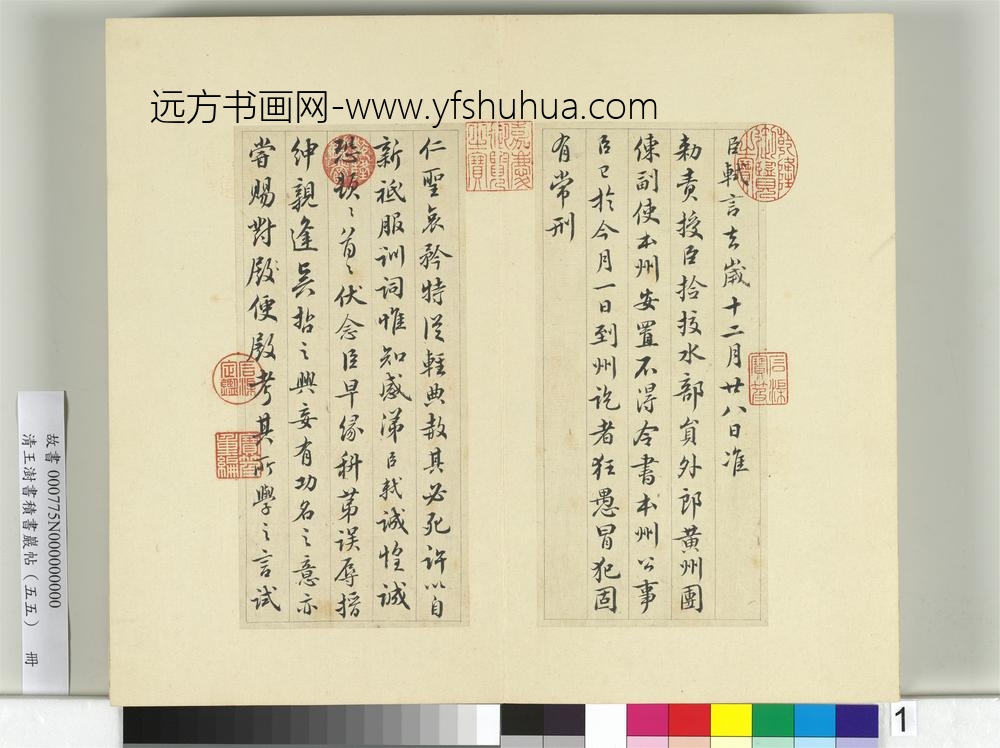 远方书画网-www.yfshuhua.com
臣軾言去歲十二月廿八日准
勅責授臣檢校水部員外郎黃州團
練副使本州安置不得令書本州公事
臣已於今月一日到州訖者狂愚冒犯固
有常刑
仁聖哀矜特從輕典赦其必死許以自
新祗服訓詞惟知感涕臣軾誠惶誠
恐頓〻首〻伏念臣早緣科第誤辱搢
紳親逢
哲之興妄有功名之意亦
嘗賜對
便殿考其所學之言試
乾隆御覽之寶
嘉慶御覽之寶
石渠寶笈
石渠定鑑
寶笈重編
故書000775N000000000
清王澍書積書巖帖(五五) 冊
1